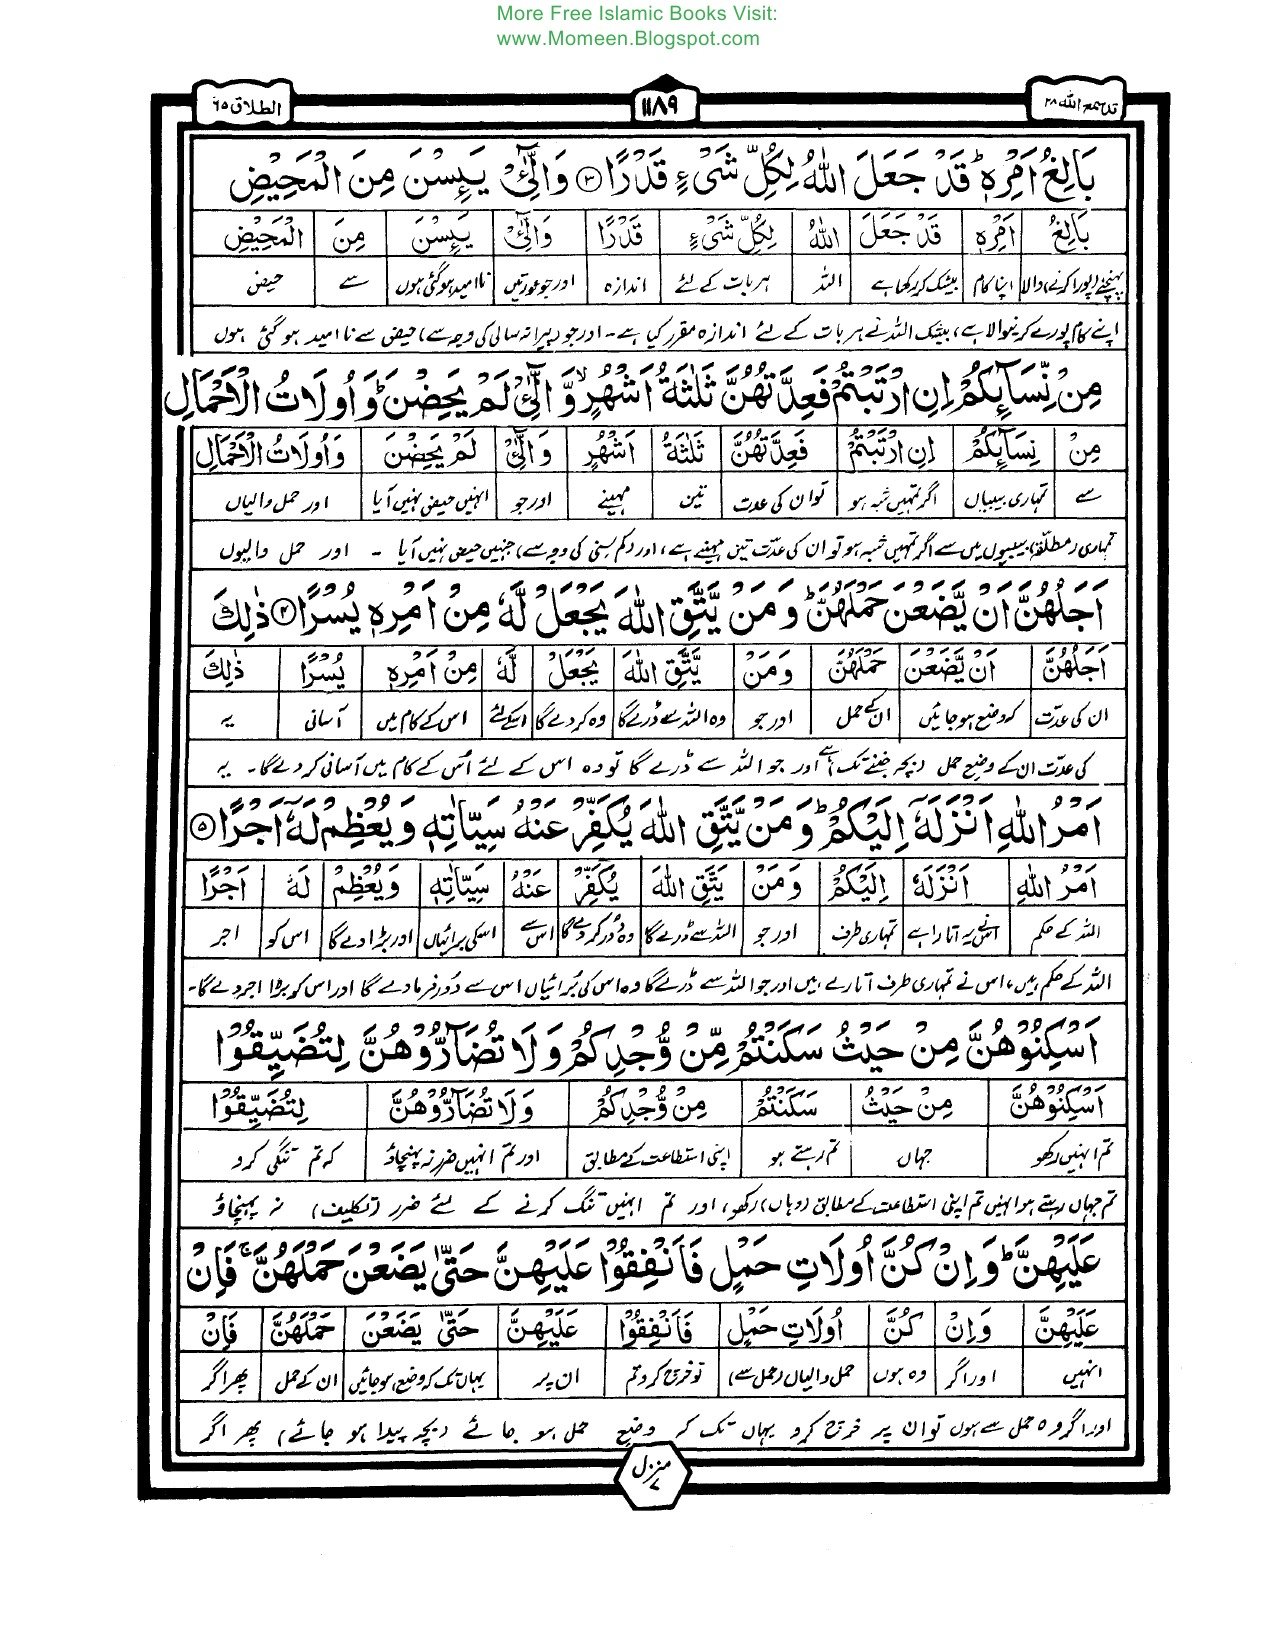 More Free Islamic Books Visit:
www.Momeen.Blogspot.com
قد سمع اللہ ۲۸ ۱۱۸۹ الطلاق ۶۵
بَالِغُ اَمْرِهٖ ؕ قَدْ جَعَلَ اللّٰهُ لِكُلِّ شَیْءٍ قَدْرًا ۝۳ وَالّٰٓـِٔیْ یَىِٕسْنَ مِنَ الْمَحِیْضِ
بَالِغُ اَمْرِهٖ قَدْ جَعَلَ اللّٰهُ لِكُلِّ شَیْءٍ قَدْرًا وَالّٰٓـِٔیْ یَىِٕسْنَ مِنَ الْمَحِیْضِ
پہنچنے (پورا کرنے) والا اپنا کام بیشک کر رکھا ہے اللہ ہر بات کے لئے اندازہ اور جو عورتیں ناامید ہوگئی ہوں سے حیض
اپنے کام پورے کرنیوالا ہے، بیشک اللہ نے ہر بات کے لئے اندازہ مقرر کیا ہے۔ اور جو (پیرانہ سالی کی وجہ سے) حیض سے نا امید ہو گئی ہوں
مِنْ نِّسَآىِٕكُمْ اِنِ ارْتَبْتُمْ فَعِدَّتُهُنَّ ثَلٰثَةُ اَشْهُرٍ ۙ وَّالّٰٓـِٔیْ لَمْ یَحِضْنَ ؕ وَاُولَاتُ الْاَحْمَالِ
مِنْ نِسَآىِٕكُمْ اِنِ ارْتَبْتُمْ فَعِدَّتُهُنَّ ثَلٰثَةُ اَشْهُرٍ وَالّٰٓـِٔیْ لَمْ یَحِضْنَ وَاُولَاتُ الْاَحْمَالِ
سے تمہاری بیبیاں اگر تمہیں شبہ ہو تو ان کی عدت تین مہینے اور جو انہیں حیض نہیں آیا اور حمل والیاں
تمہاری (مطلقہ) بیبیوں میں سے اگر تمہیں شبہ ہو تو ان کی عدّت تین مہینے ہے، اور (کم سِنی کی وجہ سے) جنہیں حیض نہیں آیا ۔ اور حمل والیوں
اَجَلُهُنَّ اَنْ یَّضَعْنَ حَمْلَهُنَّ ؕ وَمَنْ یَّتَّقِ اللّٰهَ یَجْعَلْ لَّهٗ مِنْ اَمْرِهٖ یُسْرًا ۝۴ ذٰلِكَ
اَجَلُهُنَّ اَنْ یَّضَعْنَ حَمْلَهُنَّ وَمَنْ یَّتَّقِ اللّٰهَ یَجْعَلْ لَّهٗ مِنْ اَمْرِهٖ یُسْرًا ذٰلِكَ
ان کی عدّت کہ وضع ہو جائیں ان کے حمل اور جو وہ اللہ سے ڈرے گا وہ کر دے گا اسکے لئے اس کے کام میں آسانی یہ
کی عدّت ان کے وضع حمل (بچہ جننے تک) ہے اور جو اللہ سے ڈرے گا تو وہ اس کے لئے اُس کے کام میں آسانی کر دے گا۔ یہ
اَمْرُ اللّٰهِ اَنْزَلَهٗۤ اِلَیْكُمْ ؕ وَمَنْ یَّتَّقِ اللّٰهَ یُكَفِّرْ عَنْهُ سَیِّاٰتِهٖ وَیُعْظِمْ لَهٗۤ اَجْرًا ۝۵
اَمْرُ اللّٰهِ اَنْزَلَهٗۤ اِلَیْكُمْ وَمَنْ یَتَّقِ اللّٰهَ یُكَفِّرْ عَنْهُ سَیِّاٰتِهٖ وَیُعْظِمْ لَهٗ اَجْرًا
اللہ کے حکم اسنے یہ اتارا ہے تمہاری طرف اور جو اللہ سے ڈرے گا وہ دُور کر دے گا اس سے اسکی برائیاں اور بڑا دے گا اس کو اجر
اللہ کے حکم ہیں، اس نے تمہاری طرف اتارے ہیں اور جو اللہ سے ڈرے گا وہ اس کی بُرائیاں اس سے دُور فرما دے گا اور اس کو بڑا اجر دے گا۔
اَسْكِنُوْهُنَّ مِنْ حَیْثُ سَكَنْتُمْ مِّنْ وُّجْدِكُمْ وَلَا تُضَآرُّوْهُنَّ لِتُضَیِّقُوْا
اَسْكِنُوْهُنَّ مِنْ حَیْثُ سَكَنْتُمْ مِنْ وُّجْدِكُمْ وَلَا تُضَآرُّوْهُنَّ لِتُضَیِّقُوْا
تم انہیں رکھو جہاں تم رہتے ہو اپنی استطاعت کے مطابق اور تم انہیں ضرر نہ پہنچاؤ کہ تم تنگی کرو
تم جہاں رہتے ہو انہیں تم اپنی استطاعت کے مطابق (وہاں) رکھو، اور تم انہیں تنگ کرنے کے لئے ضرر (تکلیف) نہ پہنچاؤ
عَلَیْهِنَّ ؕ وَاِنْ كُنَّ اُولَاتِ حَمْلٍ فَاَنْفِقُوْا عَلَیْهِنَّ حَتّٰی یَضَعْنَ حَمْلَهُنَّ ۚ فَاِنْ
عَلَیْهِنَّ وَاِنْ كُنَّ اُولَاتِ حَمْلٍ فَاَنْفِقُوْا عَلَیْهِنَّ حَتّٰی یَضَعْنَ حَمْلَهُنَّ فَاِنْ
انہیں اور اگر وہ ہوں حمل والیاں (حمل سے) تو خرچ کرو تم ان پر یہاں تک کہ وضع ہو جائیں ان کے حمل پھر اگر
اور اگر وہ حمل سے ہوں تو ان پر خرچ کرو یہاں تک کہ وضع حمل ہو جائے (بچہ پیدا ہو جائے) پھر اگر
منزل ۷